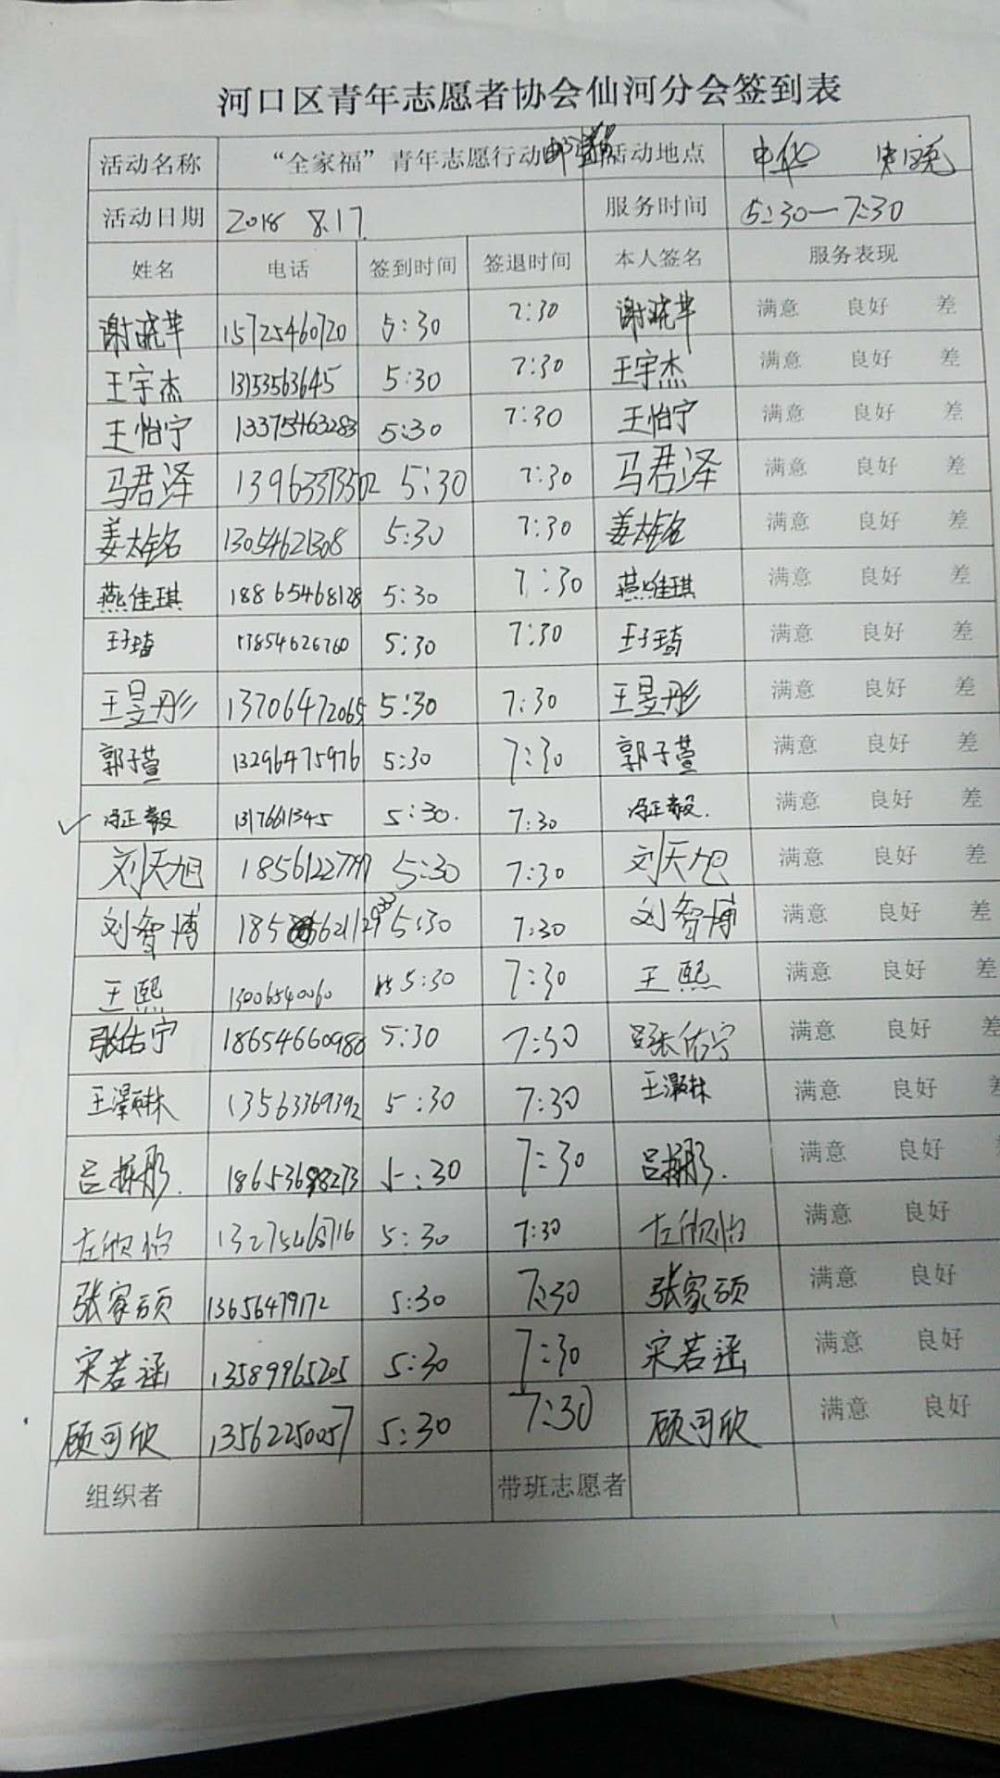 河口区青年志愿者协会仙河分会签到表
活动名称 “全家福”青年志愿行动 活动地点 中华
活动日期 2018 8.17. 服务时间 5:30—7:30
姓名 电话 签到时间 签退时间 本人签名 服务表现
谢晓苹 15725460720 5:30 7:30 谢晓苹 满意 良好 差
王宇杰 13153563645 5:30 7:30 王宇杰 满意 良好 差
王怡宁 13375463283 5:30 7:30 王怡宁 满意 良好 差
马君泽 13963373502 5:30 7:30 马君泽 满意 良好 差
姜大铭 13054621308 5:30 7:30 姜大铭 满意 良好 差
燕佳琪 18865468128 5:30 7:30 燕佳琪 满意 良好 差
王子琦 13854626760 5:30 7:30 王子琦 满意 良好 差
王昱彤 13706472065 5:30 7:30 王昱彤 满意 良好 差
郭子萱 13296475976 5:30 7:30 郭子萱 满意 良好 差
冯正毅 5:30. 7:30 冯正毅. 满意 良好 差
刘天旭 5:30 7:30 刘天旭 满意 良好 差
刘智博 5:30 7:30 刘智博 满意 良好 差
王熙 13006540060 5:30 7:30 王熙 满意 良好 差
张佑宁 18654660988 5:30 7:30 张佑宁 满意 良好 差
王灏林 13563369392 5:30 7:30 王灏林 满意 良好
吕 彤. 5:30 7:30 吕 彤. 满意 良好
左欣怡 5:30 7:30 左欣怡 满意 良好
张家硕 13656479172 5:30 7:30 张家硕 满意 良好
宋若涵 13589965205 5:30 7:30 宋若涵 满意 良好
顾可欣 13562250057 5:30 7:30 顾可欣 满意 良好
组织者 带班志愿者